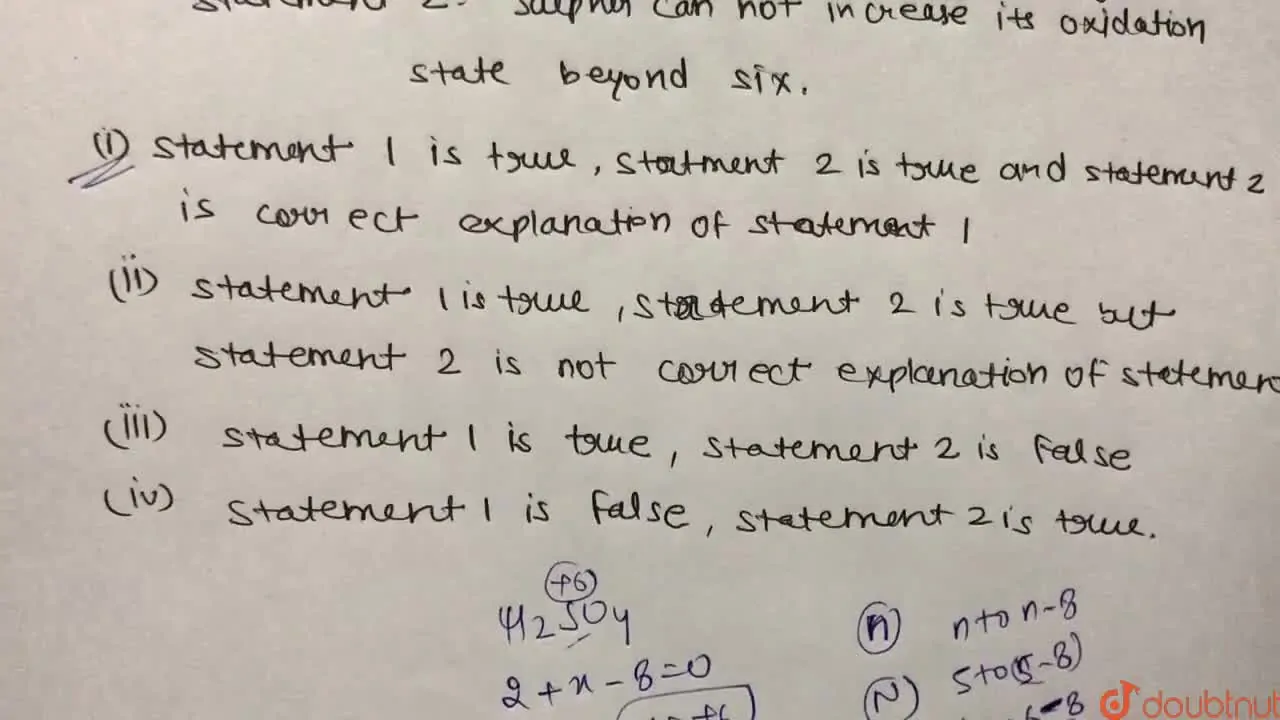 statement 2: Sulphur can not increase its oxidation
state beyond six.
(i) statement 1 is true, statment 2 is true and statement 2
is correct explanation of statement 1
(ii) statement 1 is true, statement 2 is true but
statement 2 is not correct explanation of statemen
(iii) statement 1 is true, statement 2 is false
(iv) statement 1 is false, statement 2 is true.
+6
H2SO4
2 + x - 8 = 0
+6
n n to n-8
N 5 to (5-8)
-8
doubtnut